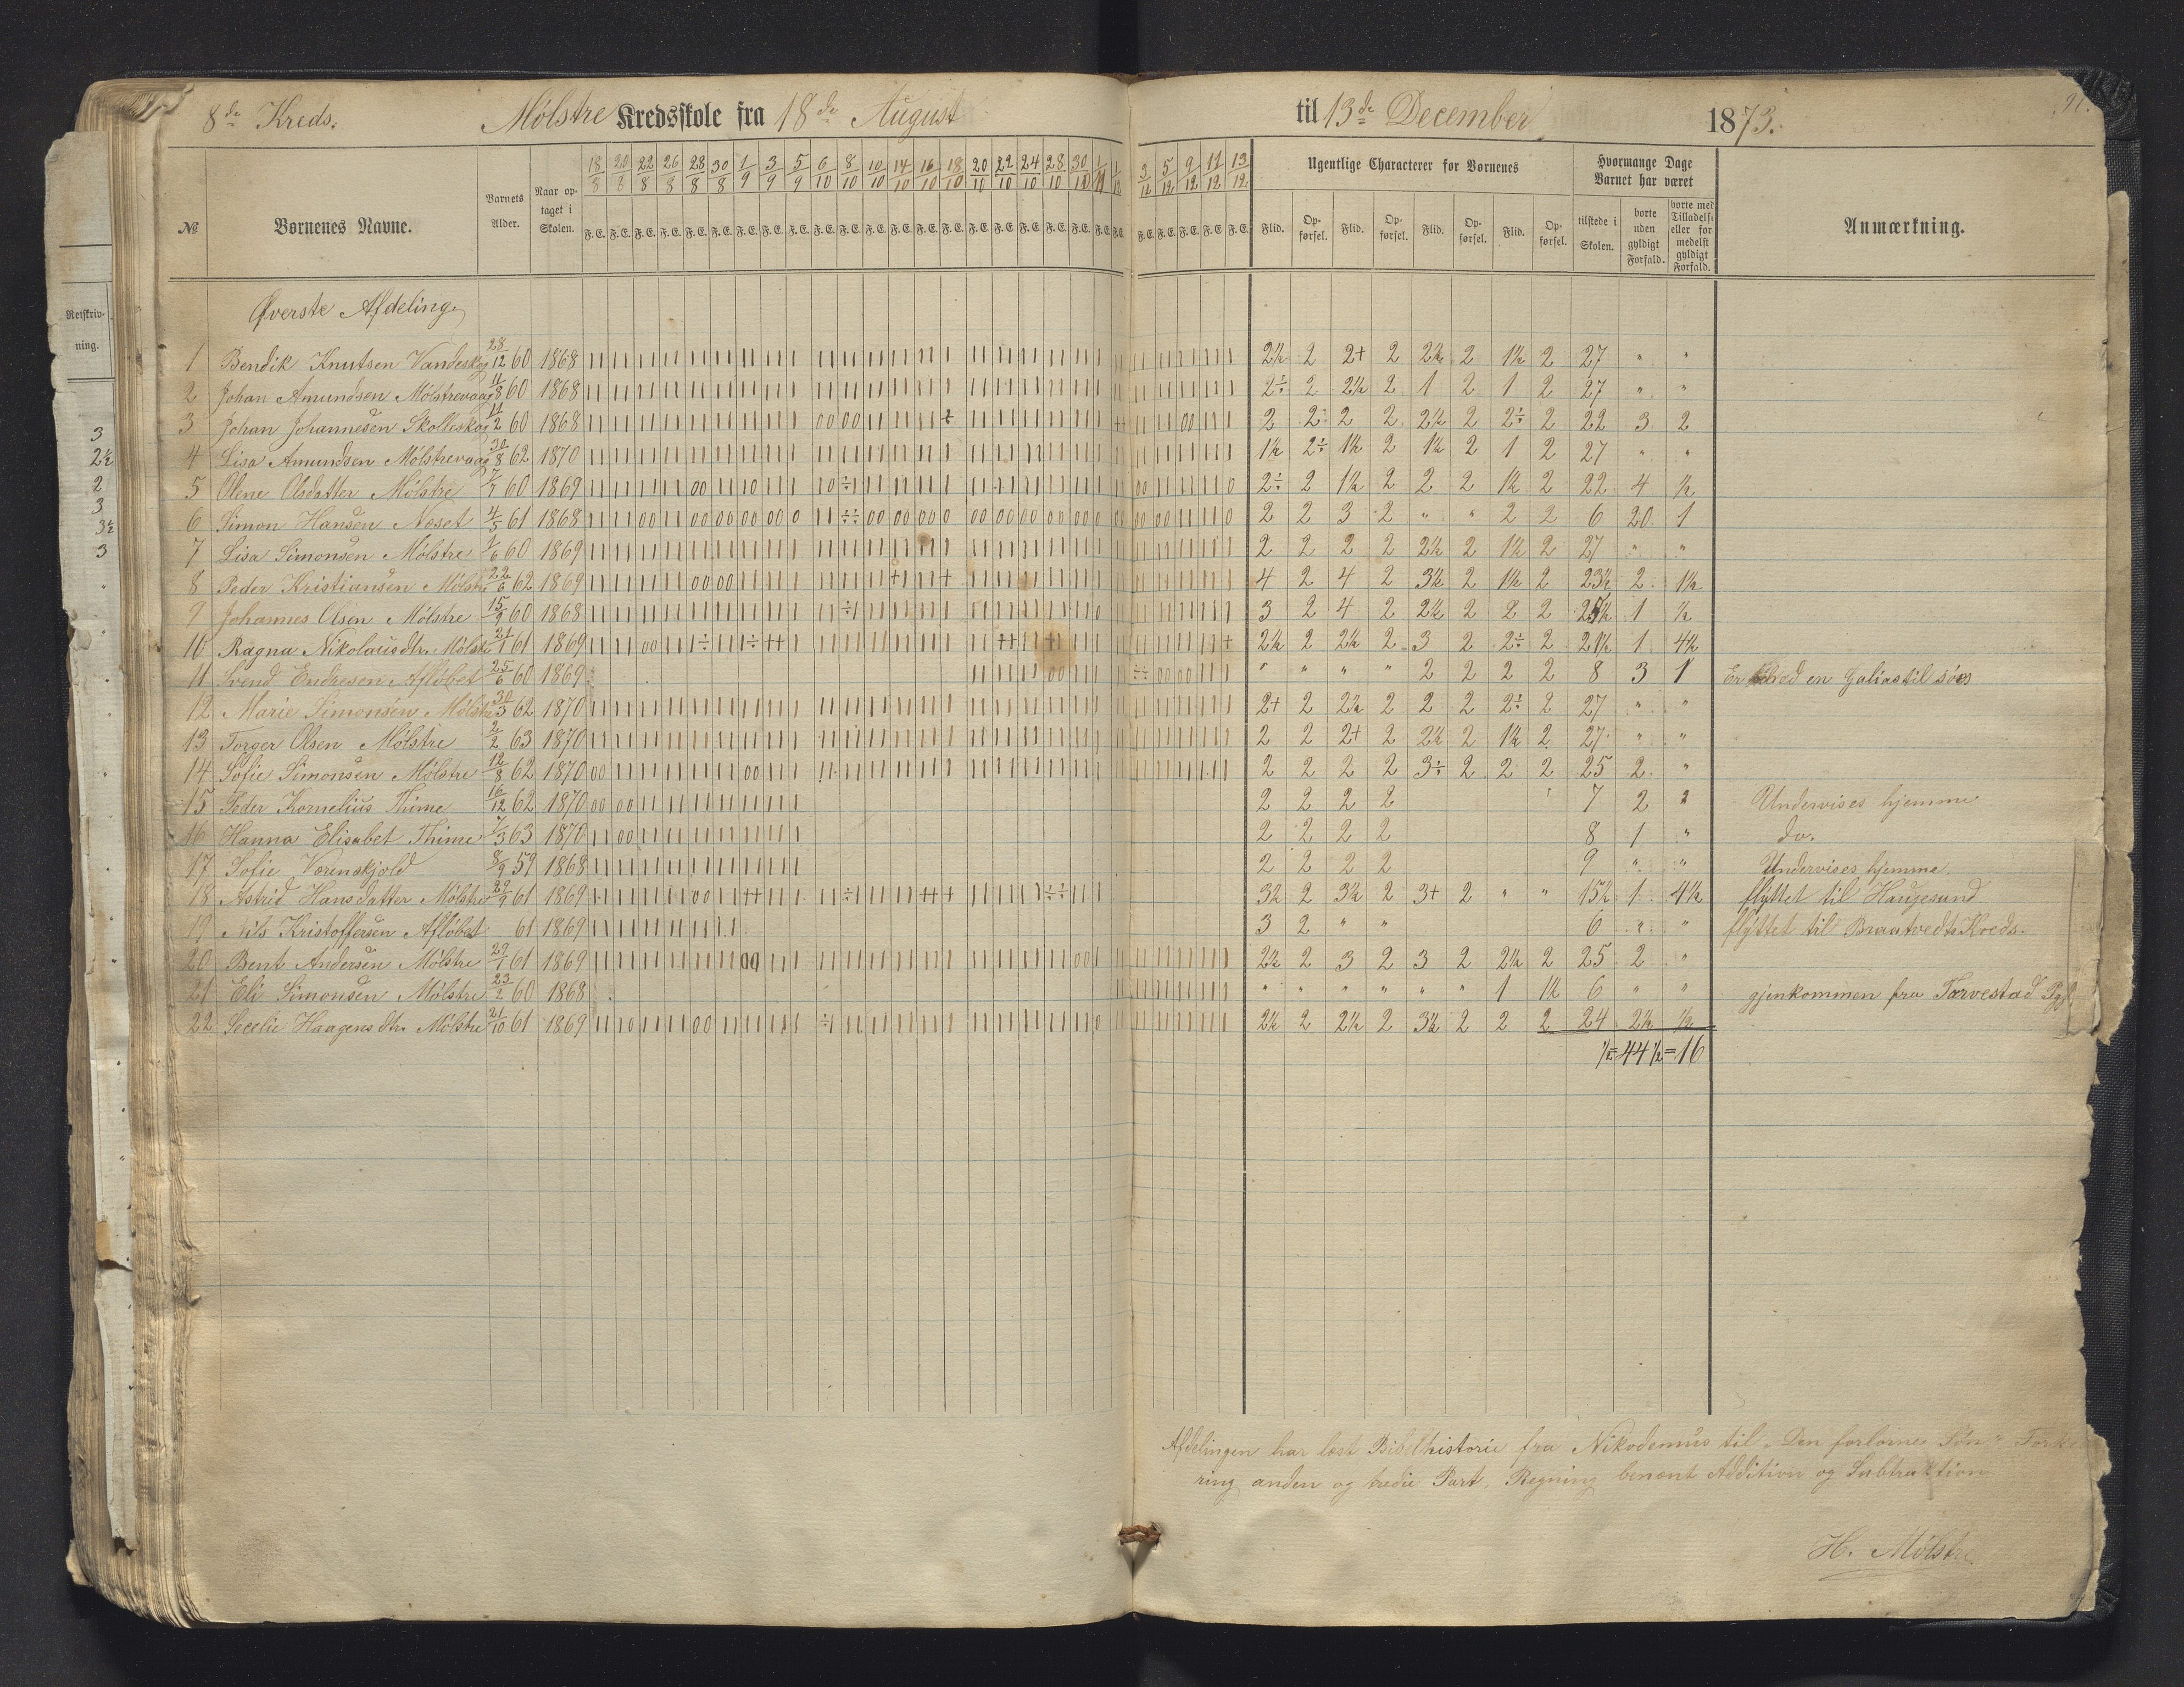 8de Kreds. Mølstre Kredsskole fra 18de August til 13de December 1873. 91.
№ Børnenes Navne. Barnets Alder. Naar optaget i Skolen. 18/8 20/8 22/8 26/8 28/8 30/8 1/9 3/9 5/9 6/10 8/10 10/10 14/10 16/10 18/10 20/10 22/10 24/10 28/10 30/10 1/11 1/12 3/12 5/12 9/12 11/12 13/12 Ugentlige Characterer for Børnenes Hvormange Dage Barnet har været Anmærkning.
F. E. Flid. Opførsel. Flid. Opførsel. Flid. Opførsel. Flid. Opførsel. tilstede i Skolen. borte uden gyldigt Forfald. borte med Tilladelse eller formedelst gyldigt Forfald.
Øverste Afdeling
1 Bendik Knutsen Vandeskog 28/12 60 1868 2½ 2 2+ 2 2½ 2 1½ 2 27 " "
2 Johan Amundsen Mølstrevaag 11/8 60 1868 2÷ 2 2½ 2 1 2 1 2 27 " "
3 Johan Johannesen Skolleskog 11/2 60 1868 2 2 2 2 2½ 2 2÷ 2 22 3 2
4 Lisa Amundsen Mølstrevaag 30/8 62 1870 1½ 2÷ 1½ 2 1½ 2 1 2 27 " "
5 Olene Olsdatter Mølstre 7/7 60 1869 2÷ 2 1½ 2 2 2 1½ 2 22 4 ½
6 Simon Hansen Næset 4/5 61 1868 2 2 3 2 " " 2 2 6 20 1
7 Lisa Simonsen Mølstre 1/6 60 1869 2 2 2 2 2½ 2 1½ 2 27 " "
8 Peder Kristiansen Mølstre 22/6 62 1869 4 2 4 2 3½ 2 1½ 2 23½ 2 1½
9 Johannes Olsen Mølstre 15/9 60 1868 3 2 4 2 2½ 2 2 2 25½ 1 ½
10 Ragna Nikolausdtr. Mølstre 21/1 61 1869 2½ 2 2½ 2 3 2 2÷ 2 21½ 1 4½
11 Svend Endresen Afløbet 25/6 60 1869 " " " " 2 2 2 2 8 3 1 Er med en Galias til søes
12 Marie Simonsen Mølstre 30/3 62 1870 2+ 2 2½ 2 2 2 2÷ 2 27 " "
13 Torger Olsen Mølstre 2/2 63 1870 2 2 2+ 2 2½ 2 1½ 2 27 " "
14 Sofie Simonsen Mølstre 12/8 62 1870 2 2 2 2 3÷ 2 2 2 25 2 "
15 Peder Kornelius Thime 16/12 62 1870 2 2 2 2 7 2 " Undervises hjemme
16 Hanna Elisabet Thime 7/3 63 1870 2 2 2 2 8 1 " do.
17 Sofie Værenskjold 8/9 59 1868 2 2 2 2 9 " " Undervises hjemme.
18 Astrid Hansdatter Mølstre 29/9 61 1869 3½ 2 3½ 2 3+ 2 " " 15½ 1 4½ flyttet til Haugesund
19 Nils Kristoffersen Afløbet 61 1869 3 2 " " 6 " " flyttet til Braatvedts Kreds.
20 Bent Andersen Mølstre 29/1 61 1869 2½ 2 3 2 3 2 2½ 2 25 2 "
21 Eli Simonsen Mølstre 23/2 60 1868 " " " " " " 1 1½ 6 " " gjenkommen fra Torvestad Pgj
22 Secelie Haagensdtr. Mølstre 21/10 61 1869 2½ 2 2½ 2 3½ 2 2 2 24 2½ ½
½=44½=16
Afdelingen har læst Bibelhistorie fra Nikodemus til „Den forlorne Søn" Forkla
ring anden og tredie Part, Regning benævnt Addition og Subtraktion
H. Mølstre
Retskriv-
ning.
3
2½
2
3
3½
3